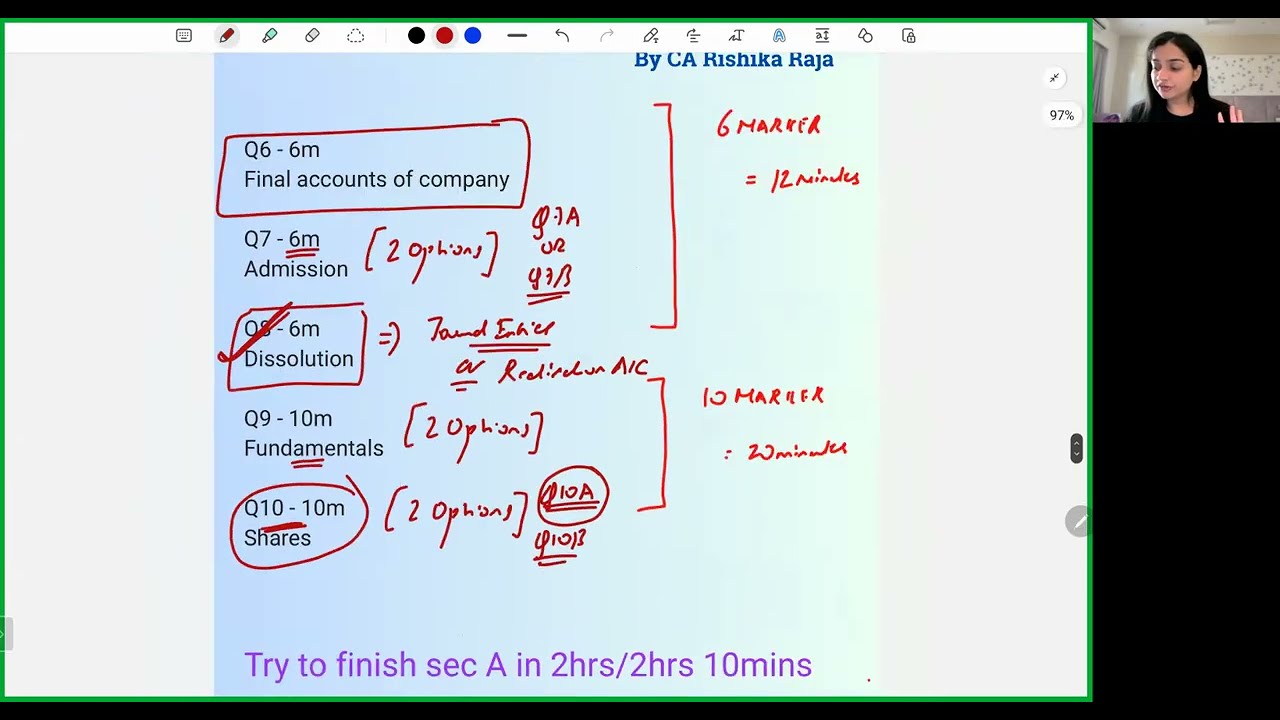 By CA Rishika Raja
97%
6 MARKER
= 12 minutes
Q6 - 6m
Final accounts of company
Q7 - 6m [2 Options] Q7A
Admission OR
Q7B
Q8 - 6m => Journal Entries
Dissolution or Realisation A/C
10 MARKER
= 20 minutes
Q9 - 10m [2 Options]
Fundamentals
Q10 - 10m [2 Options] Q10A
Shares Q10B
Try to finish sec A in 2hrs/2hrs 10mins